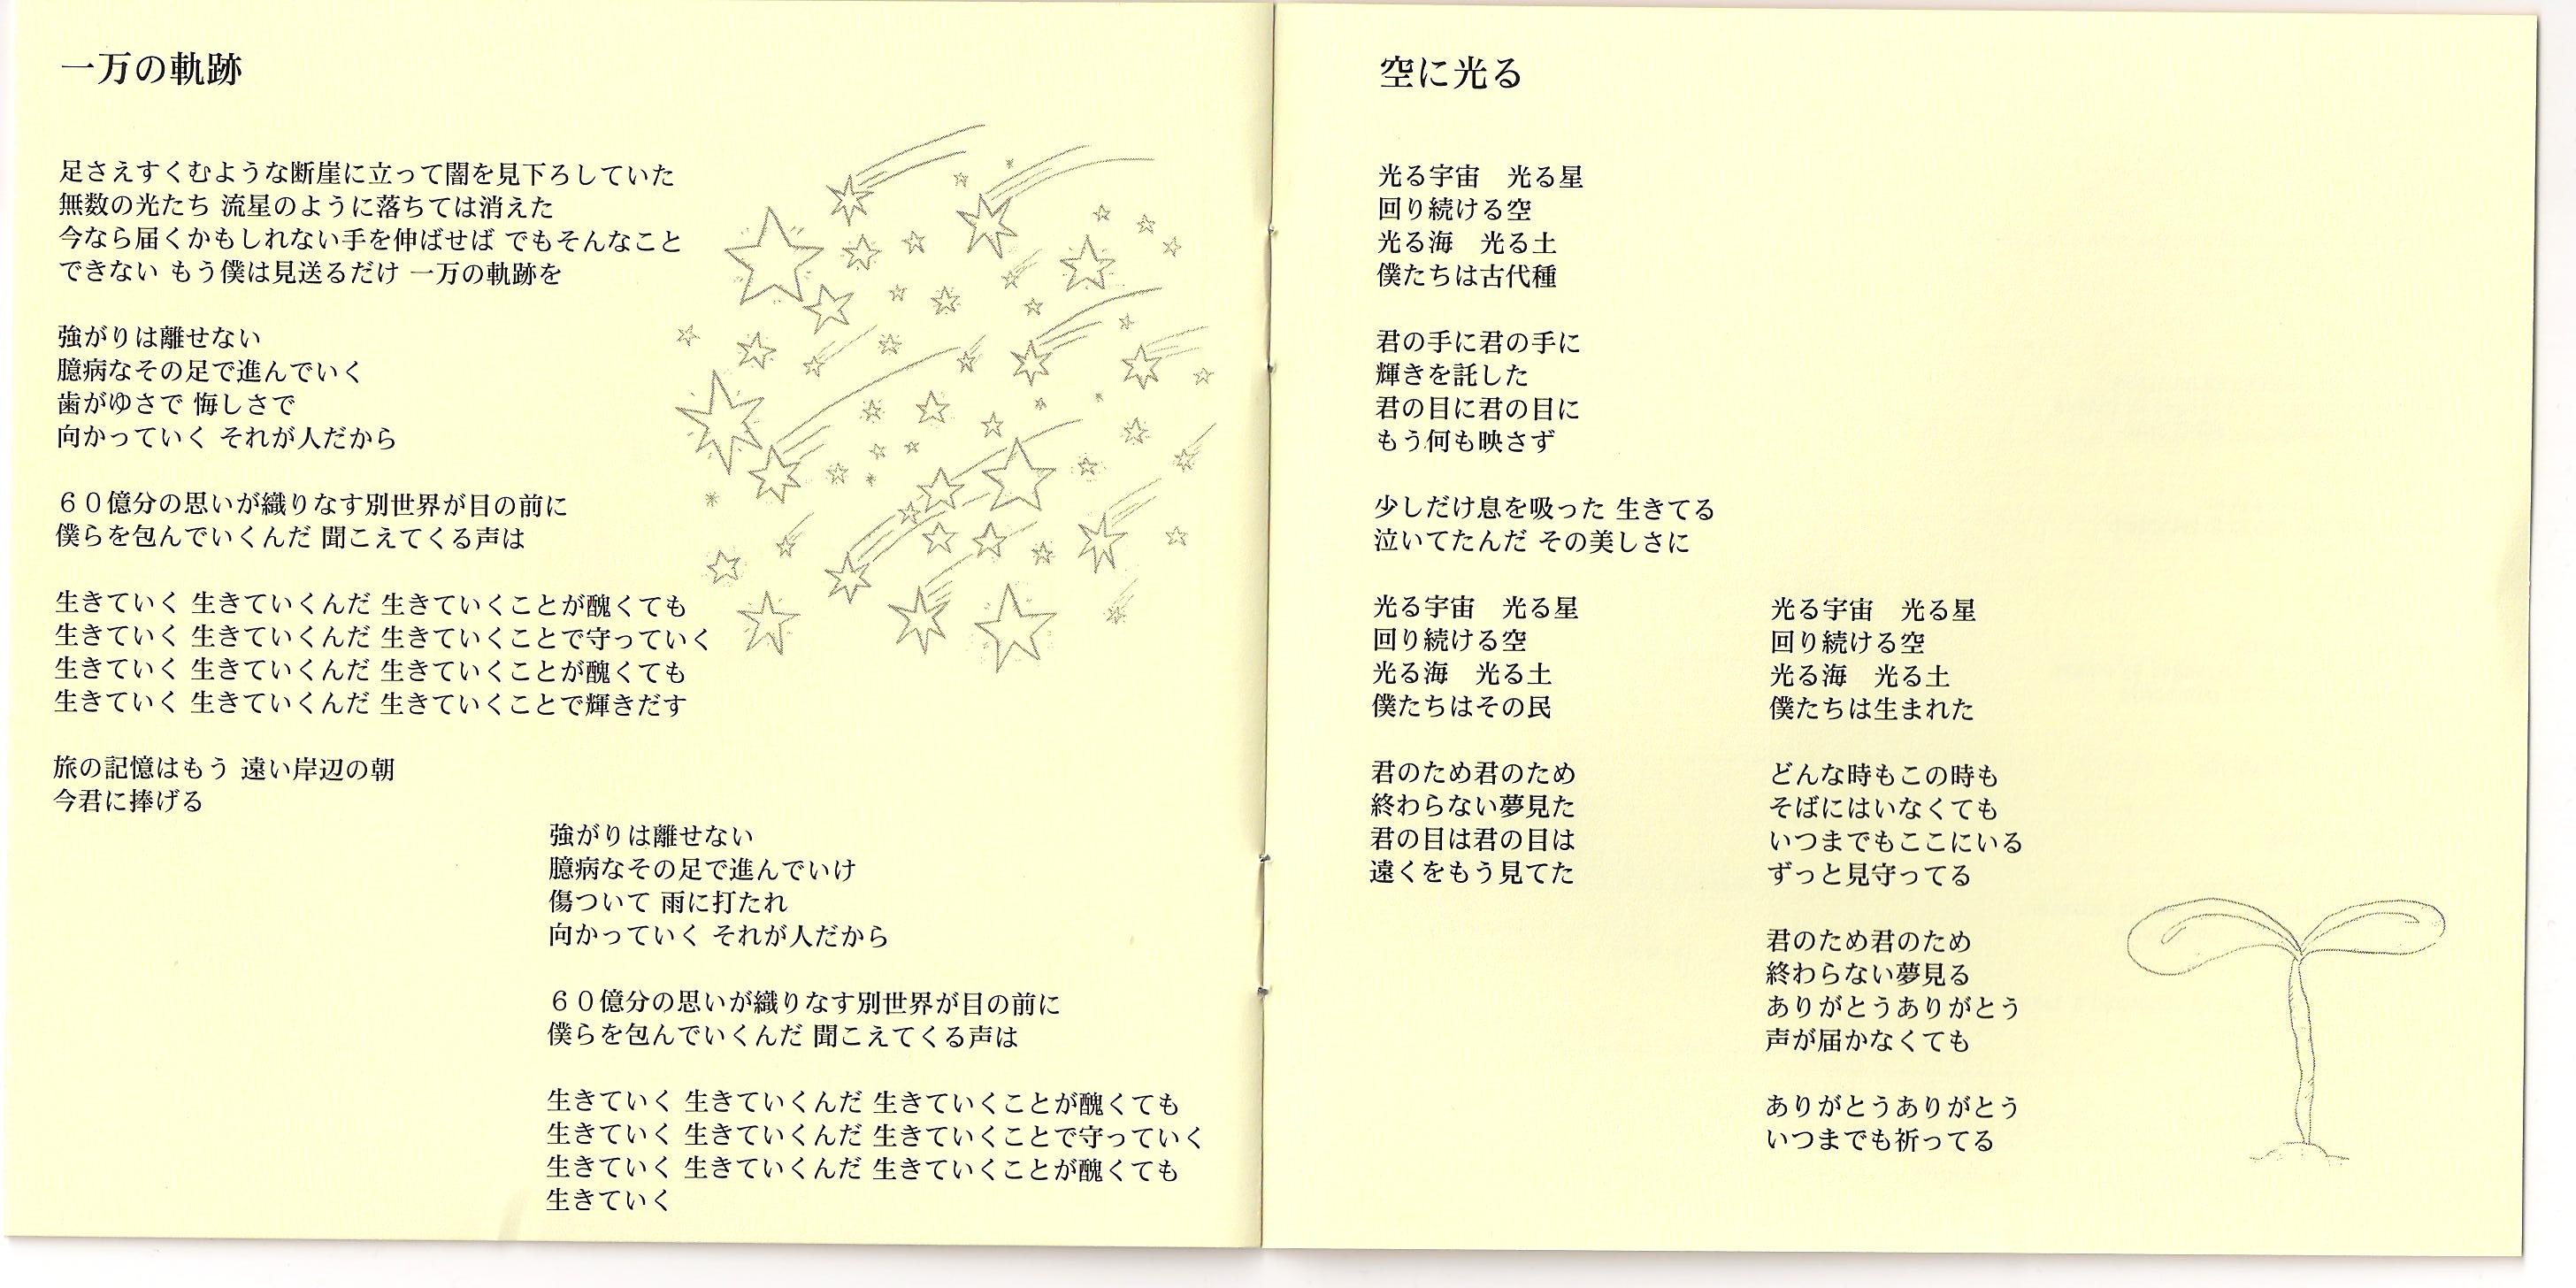 一万の軌跡
足さえすくむような断崖に立って闇を見下ろしていた
無数の光たち 流星のように落ちては消えた
今なら届くかもしれない手を伸ばせば でもそんなこと
できない もう僕は見送るだけ 一万の軌跡を
強がりは離せない
臆病なその足で進んでいく
歯がゆさで 悔しさで
向かっていく それが人だから
６０億分の思いが織りなす別世界が目の前に
僕らを包んでいくんだ 聞こえてくる声は
生きていく 生きていくんだ 生きていくことが醜くても
生きていく 生きていくんだ 生きていくことで守っていく
生きていく 生きていくんだ 生きていくことが醜くても
生きていく 生きていくんだ 生きていくことで輝きだす
旅の記憶はもう 遠い岸辺の朝
今君に捧げる
強がりは離せない
臆病なその足で進んでいけ
傷ついて 雨に打たれ
向かっていく それが人だから
６０億分の思いが織りなす別世界が目の前に
僕らを包んでいくんだ 聞こえてくる声は
生きていく 生きていくんだ 生きていくことが醜くても
生きていく 生きていくんだ 生きていくことで守っていく
生きていく 生きていくんだ 生きていくことが醜くても
生きていく
空に光る
光る宇宙　光る星
回り続ける空
光る海　光る土
僕たちは古代種
君の手に君の手に
輝きを託した
君の目に君の目に
もう何も映さず
少しだけ息を吸った 生きてる
泣いてたんだ その美しさに
光る宇宙　光る星
回り続ける空
光る海　光る土
僕たちはその民
君のため君のため
終わらない夢見た
君の目は君の目は
遠くをもう見てた
光る宇宙　光る星
回り続ける空
光る海　光る土
僕たちは生まれた
どんな時もこの時も
そばにはいなくても
いつまでもここにいる
ずっと見守ってる
君のため君のため
終わらない夢見る
ありがとうありがとう
声が届かなくても
ありがとうありがとう
いつまでも祈ってる